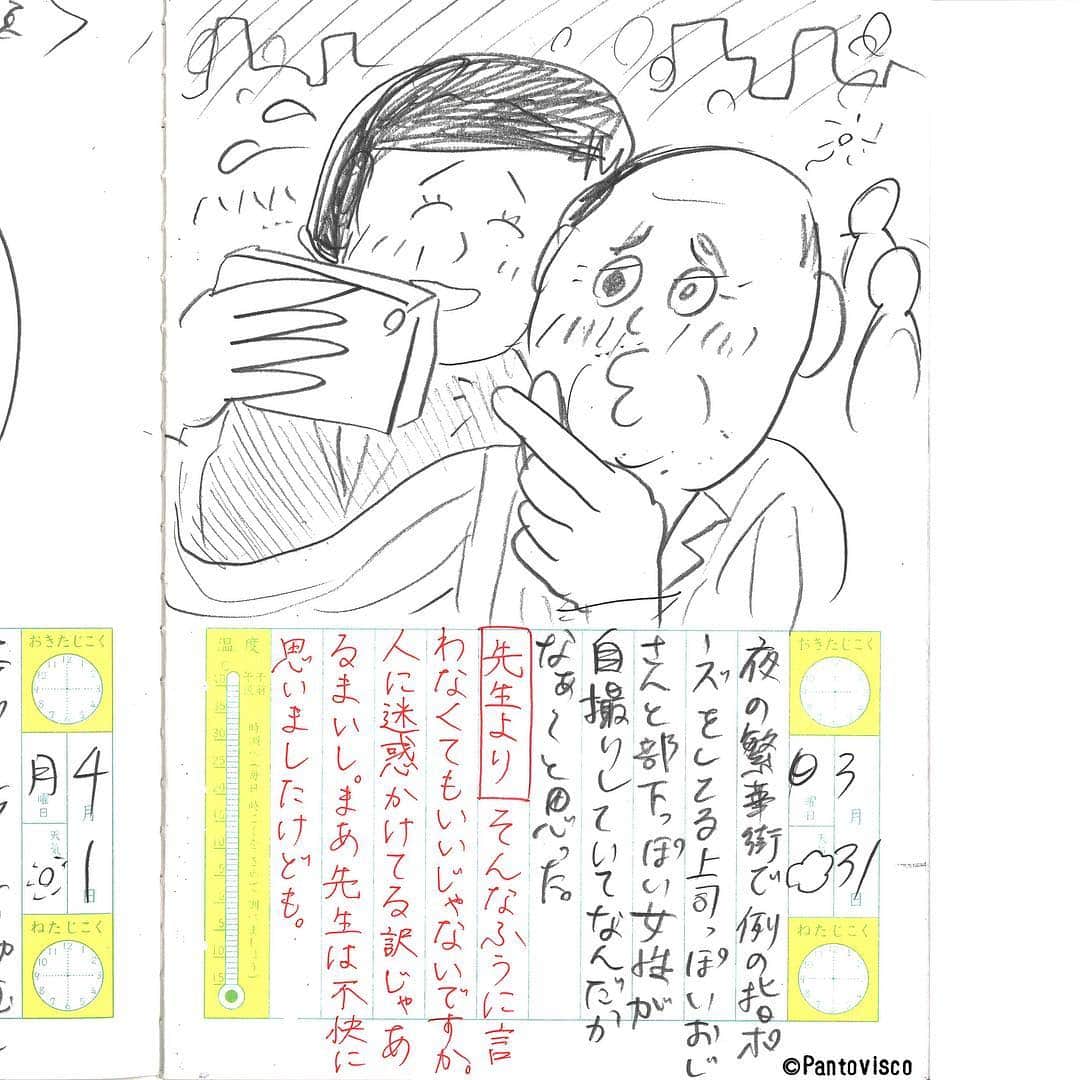 おきたじこく
3月31日
日曜日
ねたじこく
夜の繁華街で例の指ポ
ーズをしてる上司っぽいおじ
さんと部下っぽい女性が
自撮りしていてなんだか
なぁ〜と思った。
先生より そんなふうに言
わなくてもいいじゃないですか。
人に迷惑かけてる訳じゃあ
るまいし。まあ先生は不快に
思いましたけども。
温度
おきたじこく
4月1日
月曜日
天気
ねたじこく
©Pantovisco